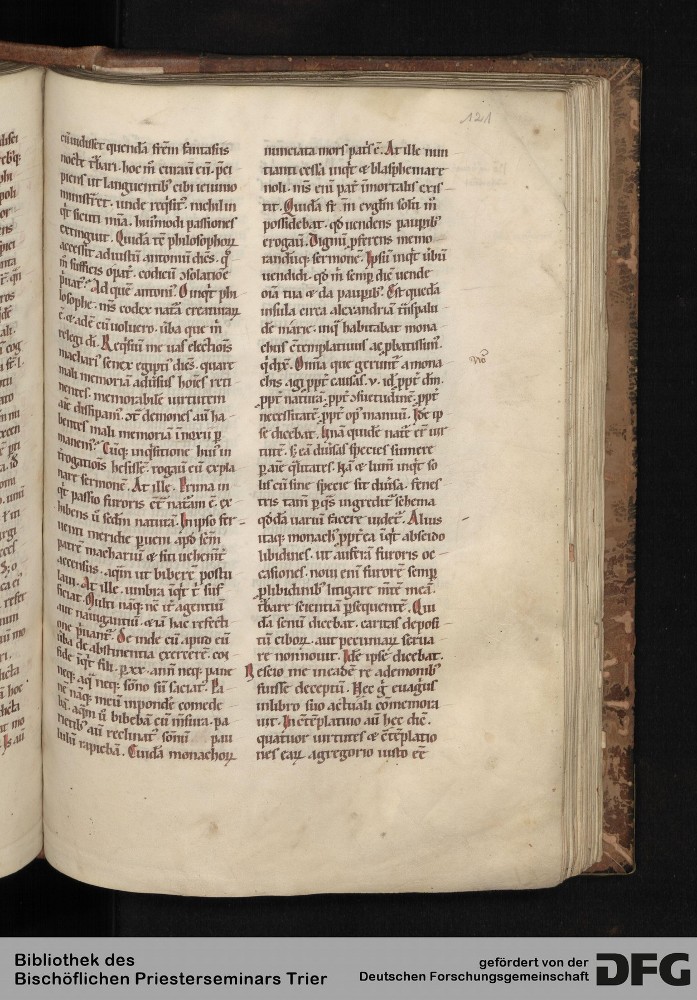 121
cū uidisset quendā frēm fantasiis
nocte t'bari. hoc m̄ curauı eū. p̄ci
piens ut languentib' cibi ieiunio
ministret. unde reqisit'. nichil in
q̄t sicuti mīa. hui'modi passiones
extinguit. Quidā tē philosophoꝝ
accessit ad iustū antoniū dicēs. q̄
m̄ sufficis o pat'. codicū ɔsolatiōe
p̄uat'. Ad que antoni'. O inqt phi
losophe. m̄s codex nat'a creaturaꝝ
ē. ⁊ adē cū uoluero. ūba que m̄
relegi di. Reqsiuit me uas electiois
machari' senex egipti' dicēs. quare
mali memoriā adūsus hoīes reti
nentes. memorabilē uirtutem
aīe dissipam'. ɔt' demones aū ha
bentes mali memoriā inoxii ꝑ
manem'. Cūq; inq̄sitione hui' in
t'rogatiois hesisse. rogaui eū expla
nare sermonē. At ille. Prima in
q̄t passio furoris ēt' natam ē. ex
hibens ū sedm naturā. In ipso fer
uenti meridie ꝑueni. apd sēm
patrē machariū ⁊ siti uehemēt'
accensus. aq̄m ut biberē postu
laui. At ille. umbra iq̄t t' suf
ficiat. Multi naq; nē it' agentiū
aut nauigantiū. ⁊ ia hac refecti
one p̄uant'. Deinde cū apud eū
ūba de abstinentia exercerē. con
fide iq̄t fili. ꝑ xx. anni neq; pane
neq; aq̄ neq; sōno sū saciat'. Pa
nē naq; meū in pondē comede
bā. aq̄m ū bibebā cū m̄sura. pa
rietib' aū reclinat' sōmū pau
lulū rapiebā. Cuidā monachoꝝ
nunciata mors pat's ē. At ille nun
tianti cessa inq̄t ⁊ blasphemare
noli. m̄s eni pat' inmortalis exis
tit. Quidā fr̄ m̄ euglm̄ solū m̄
possidebat. qd̄ uendens paupib'
erogau. Dignū p̄ferens memo
randūq; sermonē. Ipsū inqt ūbū
uendidi. qd̄ m̄ semp̄ dic' uende
oīa tua ⁊ da paupib'. Est quedā
insula circa alexandriā m̄ispalu
dē marie. inq; habitabat mona
chus cōtemplatiuus ac p̄batissim'.
q̄ dix̄. Omīa que gerunt' a mona
chis. agi ppt' causas. v. id ppt' dm̄.
ppt' naturā. ppt' ɔsuetudinē. ppt'
necessitatē. ppt' op' manuū. Idē ip
se dicebat. Unā quidē nat'ē ēē uir
tutē. s; eā diūsas species sumere
ꝑ aīē q̄litates. Nā ⁊ lum̄ inqt so
lis cū sine specie sit diūsa. fenes
tris tam p̄ q̄s ingredit' schema
qd̄dā uariū facere uidet'. Alius
itaq; monach' ppt'ea iq̄t abscido
libidines. ut auferā furoris oc
casiones. noui enī furorē semp̄
ꝑ libidinib' litigare m̄tē meā.
t'bare scientiā ꝑsequentē. Qui
dā senū dicebat. caritas deposi
tū ciboꝝ. aut pecuniaꝝ serua
re non nouit. Idē ipse dicebat.
Nescio me in eadē re a demonib'
fuisse deceptū. Hec g̊ euagri'
in libro suo actuali cōmemora
uit. In cōtēplatiuo aū hec dic̄.
quatuor uirtutes ⁊ cōtēplatio
nes eaꝝ a gregorio iusto ēē
Bibliothek des
Bischöflichen Priesterseminars Trier
gefördert von der
Deutschen Forschungsgemeinschaft
DFG